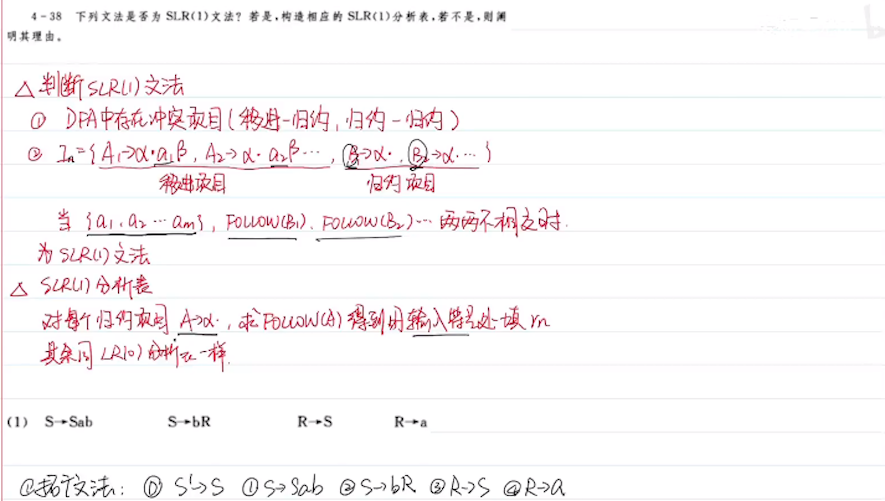 4-38 下列文法是否为 SLR(1)文法?若是,构造相应的 SLR(1)分析表,若不是,则阐
明其理由。
△ 判断SLR(1)文法
① DFA中存在冲突项目(移进-归约,归约-归约)
② In={A1→α·a1β, A2→α·a2β…, B1→α·, B2→α·…}
移进项目 归约项目
当 {a1,a2…am}, FOLLOW(B1), FOLLOW(B2)…两两不相交时.
为SLR(1)文法
△ SLR(1)分析表
对每个归约项目 A→α·, 求FOLLOW(A)得到的输入符号处填 rn
其余同LR(0)分析表一样.
(1) S→Sab S→bR R→S R→a
①拓广文法: ⓪ S'→S ①S→Sab ②S→bR ③R→S ④R→a